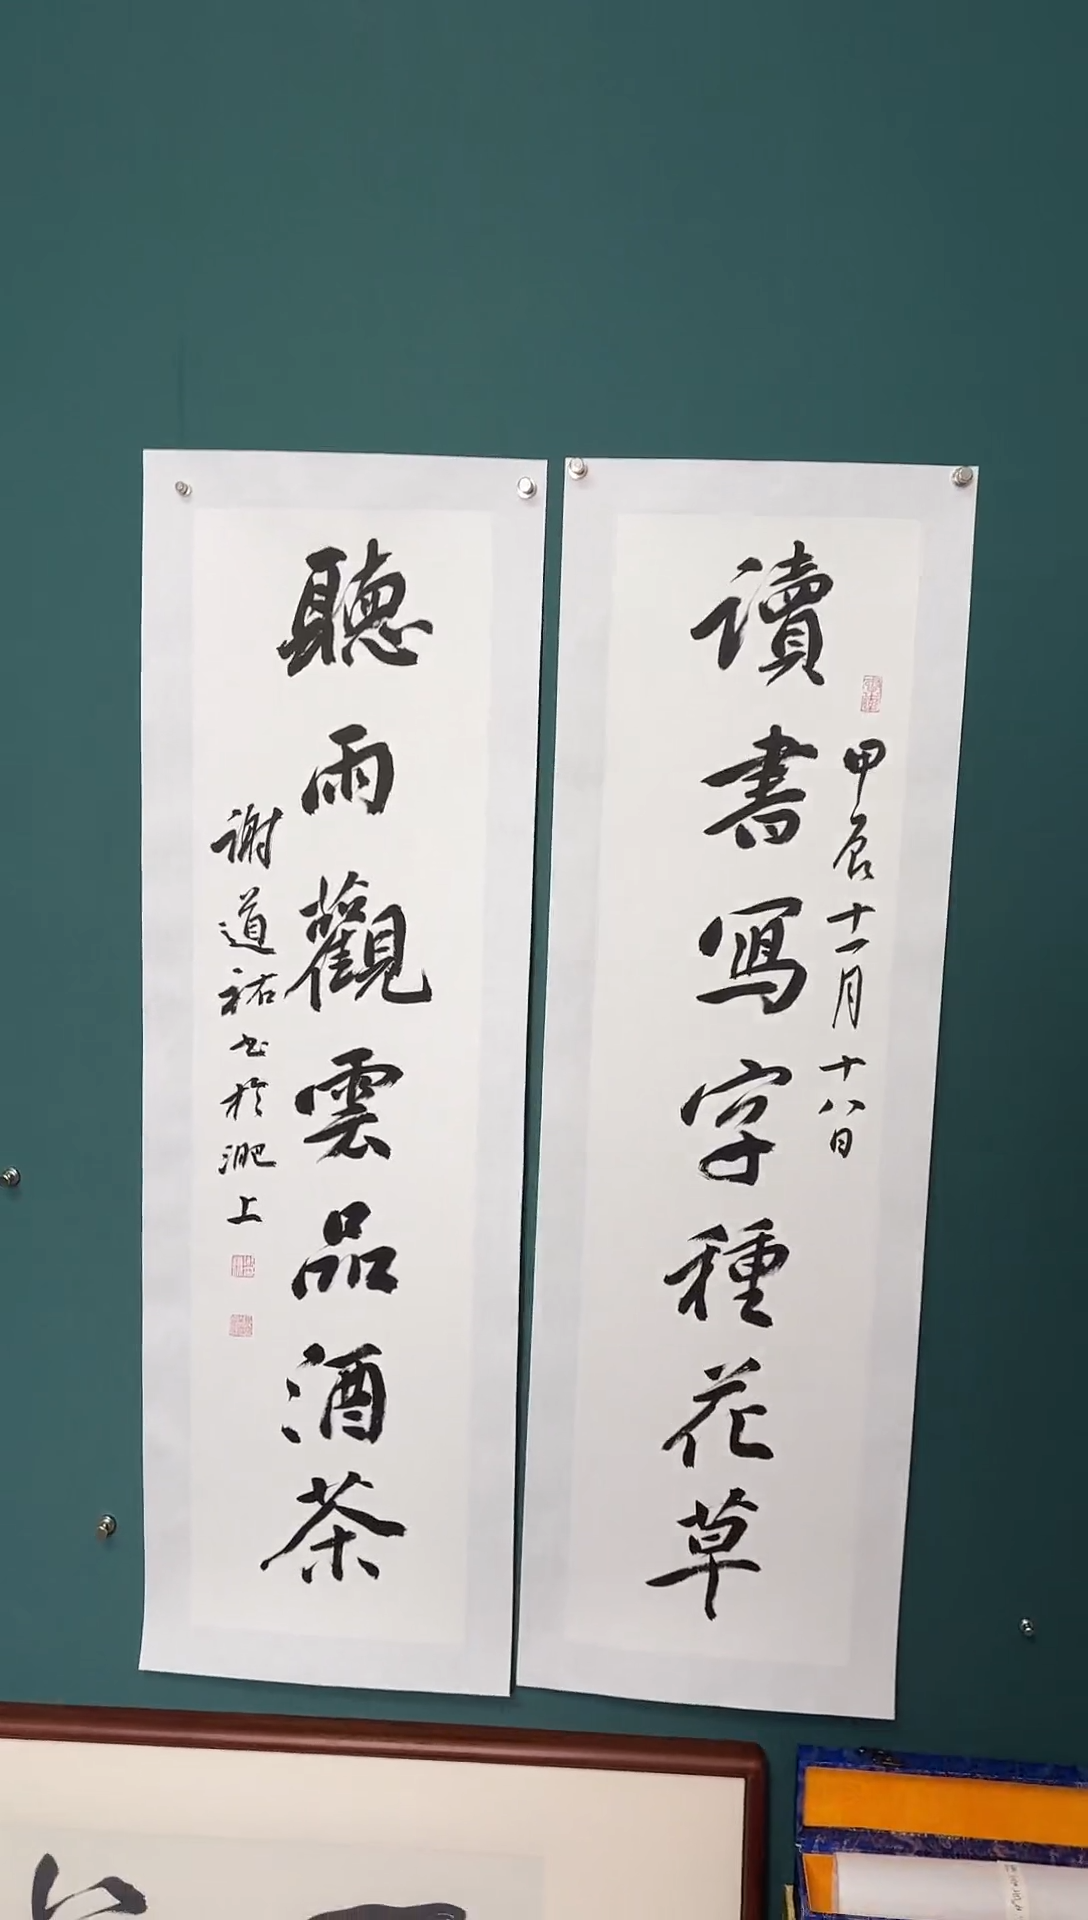 讀書寫字種花草
甲辰十一月十八日
聽雨觀雲品酒茶
谢道祐书於淝上